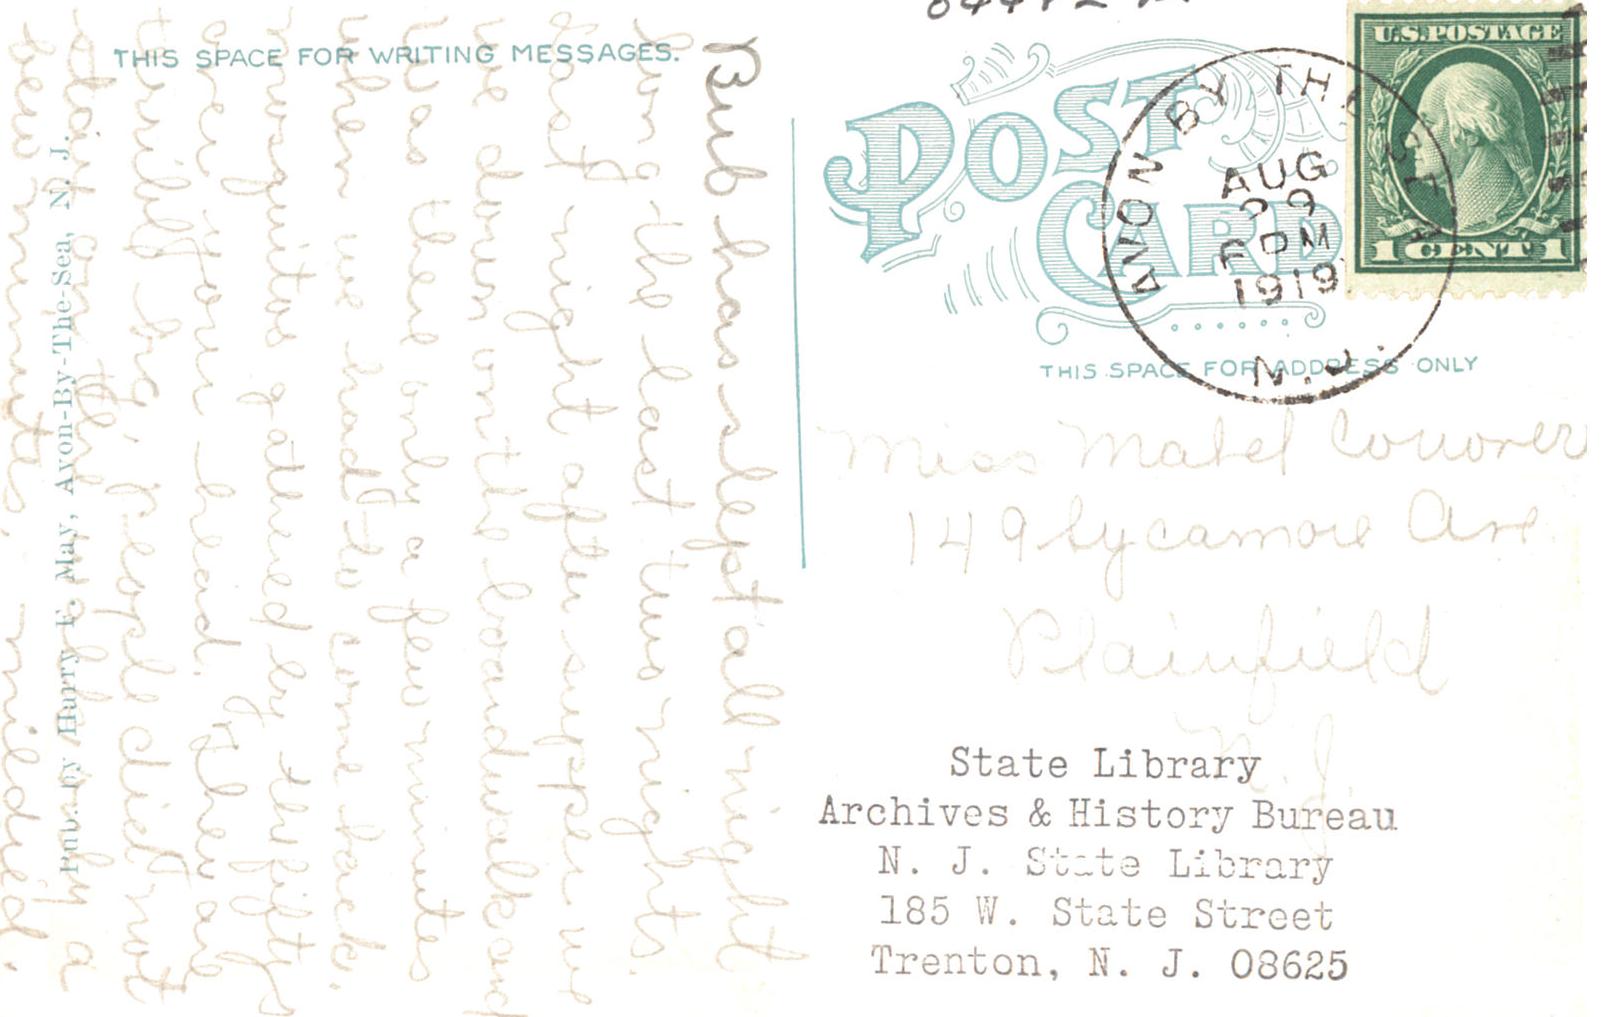 THIS SPACE FOR WRITING MESSAGES.
POST
CARD
U.S. POSTAGE
1 CENT 1
AVON BY THE SEA
AUG
29
PM
1919
N. J.
THIS SPACE FOR ADDRESS ONLY
Bub has slept all night
long the last two nights.
Last night after supper we
was down on the boardwalk and
was there only a few minutes
when we had to come back.
musquitos gathered by the fifty
over your head. They are
terribly big, people did not
stay on the boardwalk a
few minutes.
Pub. by Harry F. May, Avon-By-The-Sea, N. J.
Miss Mabel Conover
149 Sycamore Ave.
Plainfield
N. J.
State Library
Archives & History Bureau
N. J. State Library
185 W. State Street
Trenton, N. J. 08625